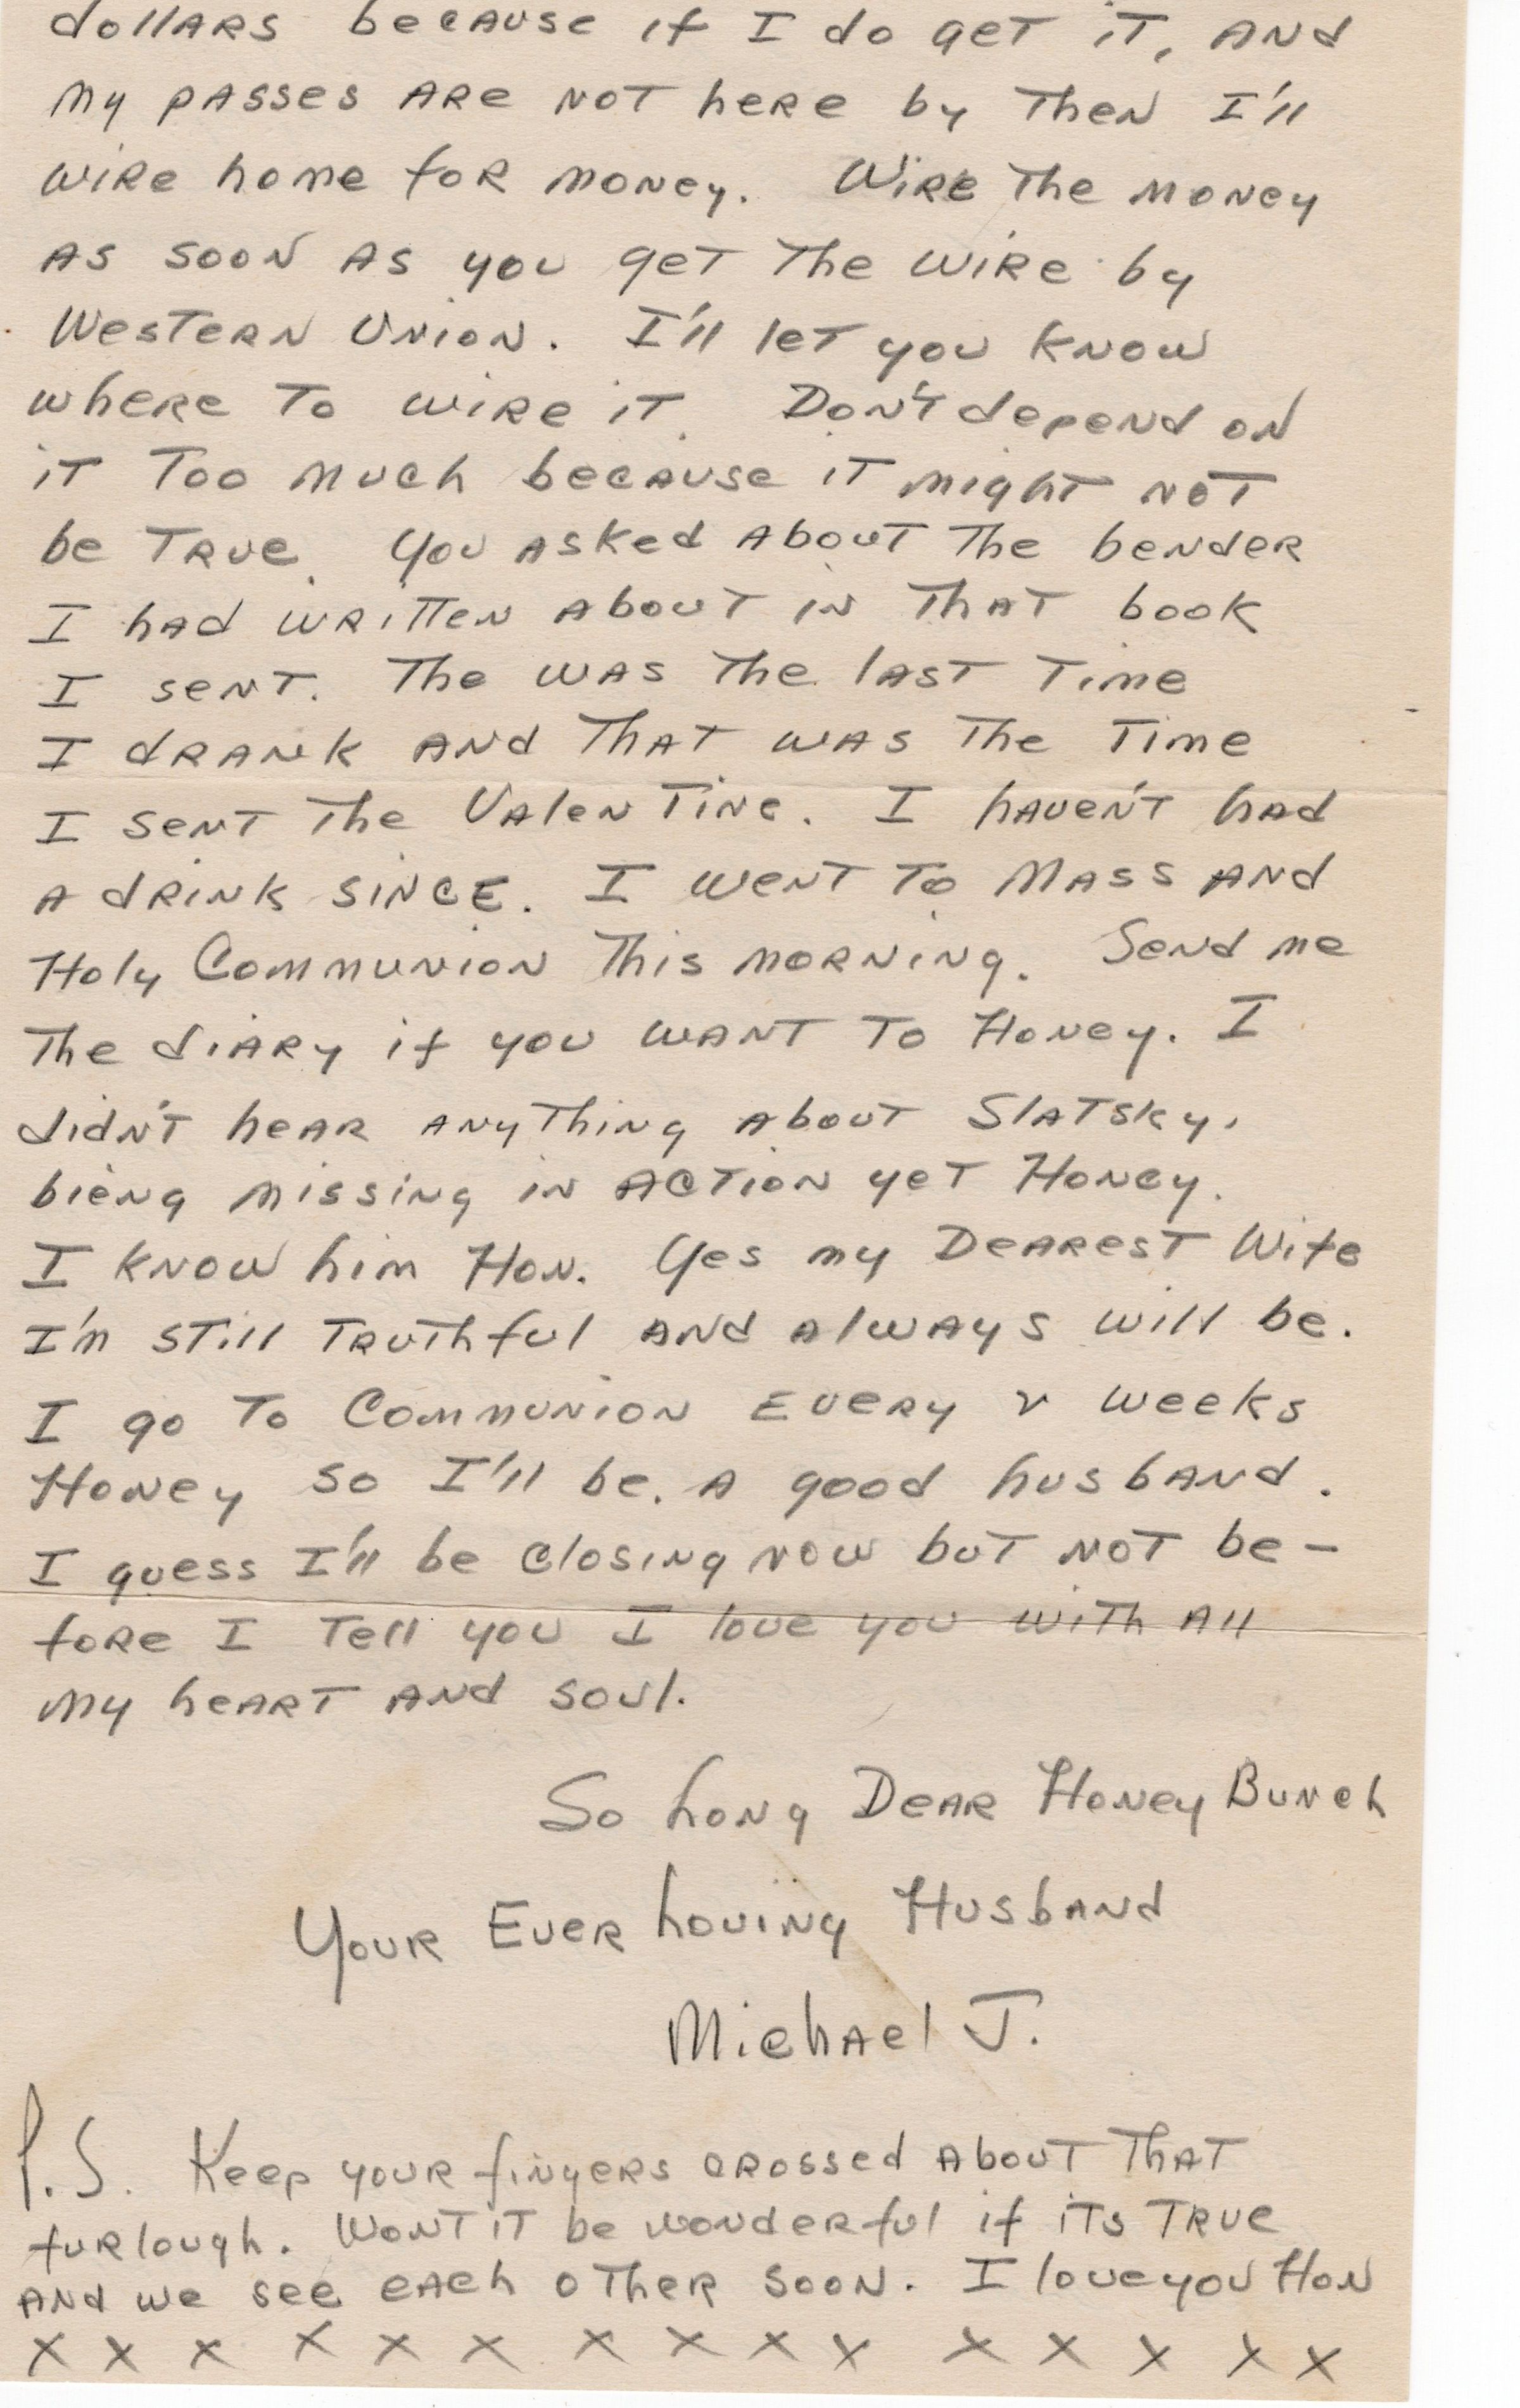 dollars because if I do get it, and
my passes are not here by then I'll
wire home for money. Wire the money
as soon as you get the wire by
Western Union. I'll let you know
where to wire it. Don't depend on
it too much because it might not
be true. You asked about the bender
I had written about in that book
I sent. The was the last time
I drank and that was the time
I sent the Valentine. I haven't had
a drink since. I went to Mass and
Holy Communion this morning. Send me
the diary if you want to Honey. I
didn't hear anything about Slatsky,
bieng missing in action yet Honey.
I know him Hon. Yes my Dearest Wife
I'm still truthful and always will be.
I go to Communion every 2 weeks
Honey so I'll be. a good husband.
I guess I'll be closing now but not be-
fore I tell you I love you with all
my heart and soul.
So Long Dear Honey Bunch
Your Ever Loving Husband
Michael J.
P.S. Keep your fingers crossed about that
furlough. Wont it be wonderful if its true
and we see each other soon. I love you Hon
x x x x x x x x x x x x x x x